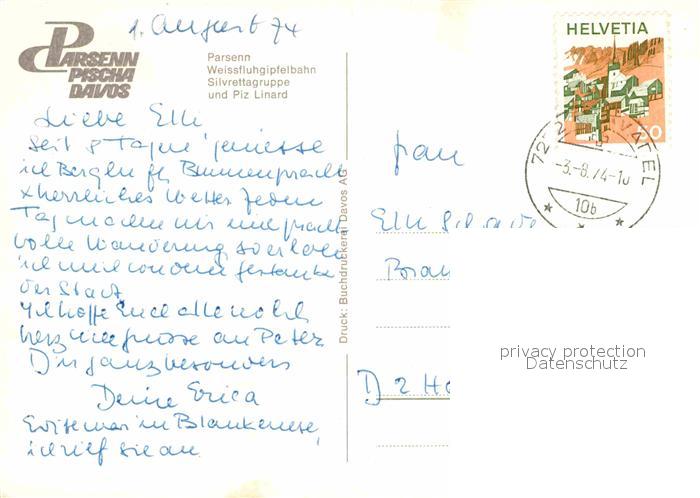 1. August 74
PARSENN
PISCHA
DAVOS
Parsenn
Weissfluhgipfelbahn
Silvrettagruppe
und Piz Linard
HELVETIA
-3.-8.74-10
10b
Liebe Elli
seit 8 Tagen geniesse
ich Bergluft Blumenpracht
+ herrliches Wetter jeden
Tag machen wir eine pracht
volle Wanderung so erhole
ich mich von dem Gestank
der Stadt
Ich hoffe Euch alle wohl
herz an Peter
Dir ganz besonders
Deine Erica
war in Blankenese,
ich rief sie an
Druck: Buchdruckerei Davos AG
Frau
Elli
D 2 Ha
privacy protection
Datenschutz